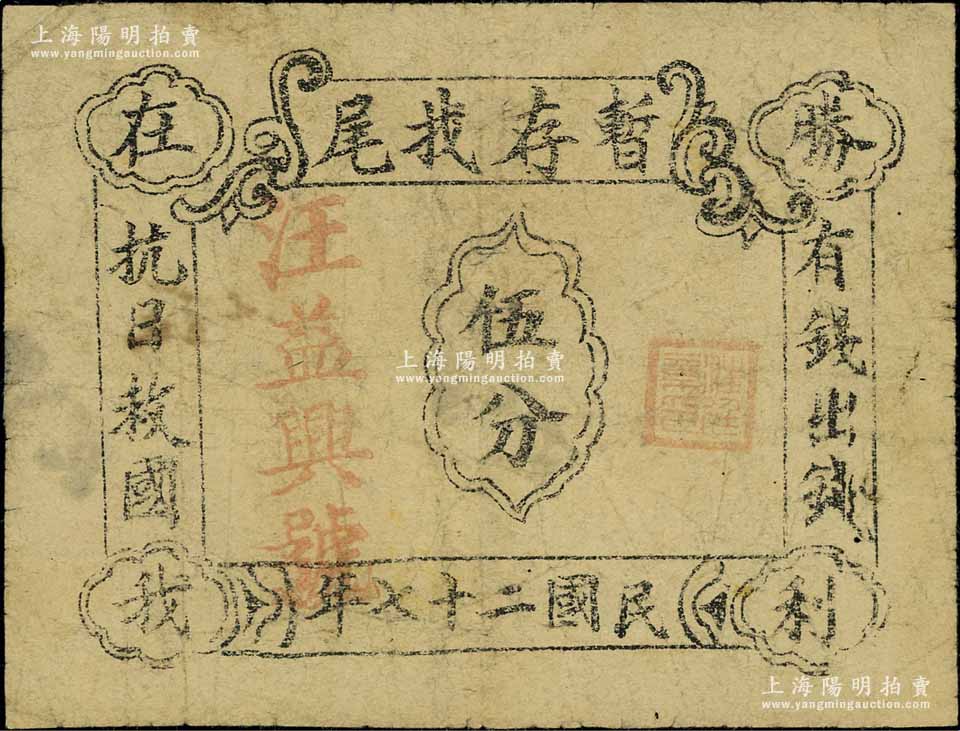 上海陽明拍賣
www.yangmingauction.com
暫存找尾
勝利
在我
有錢出錢
伍分
汪益興號
抗日救國
民國二十七年
上海陽明拍賣
www.yangmingauction.com
上海陽明拍賣
www.yangmingauction.com